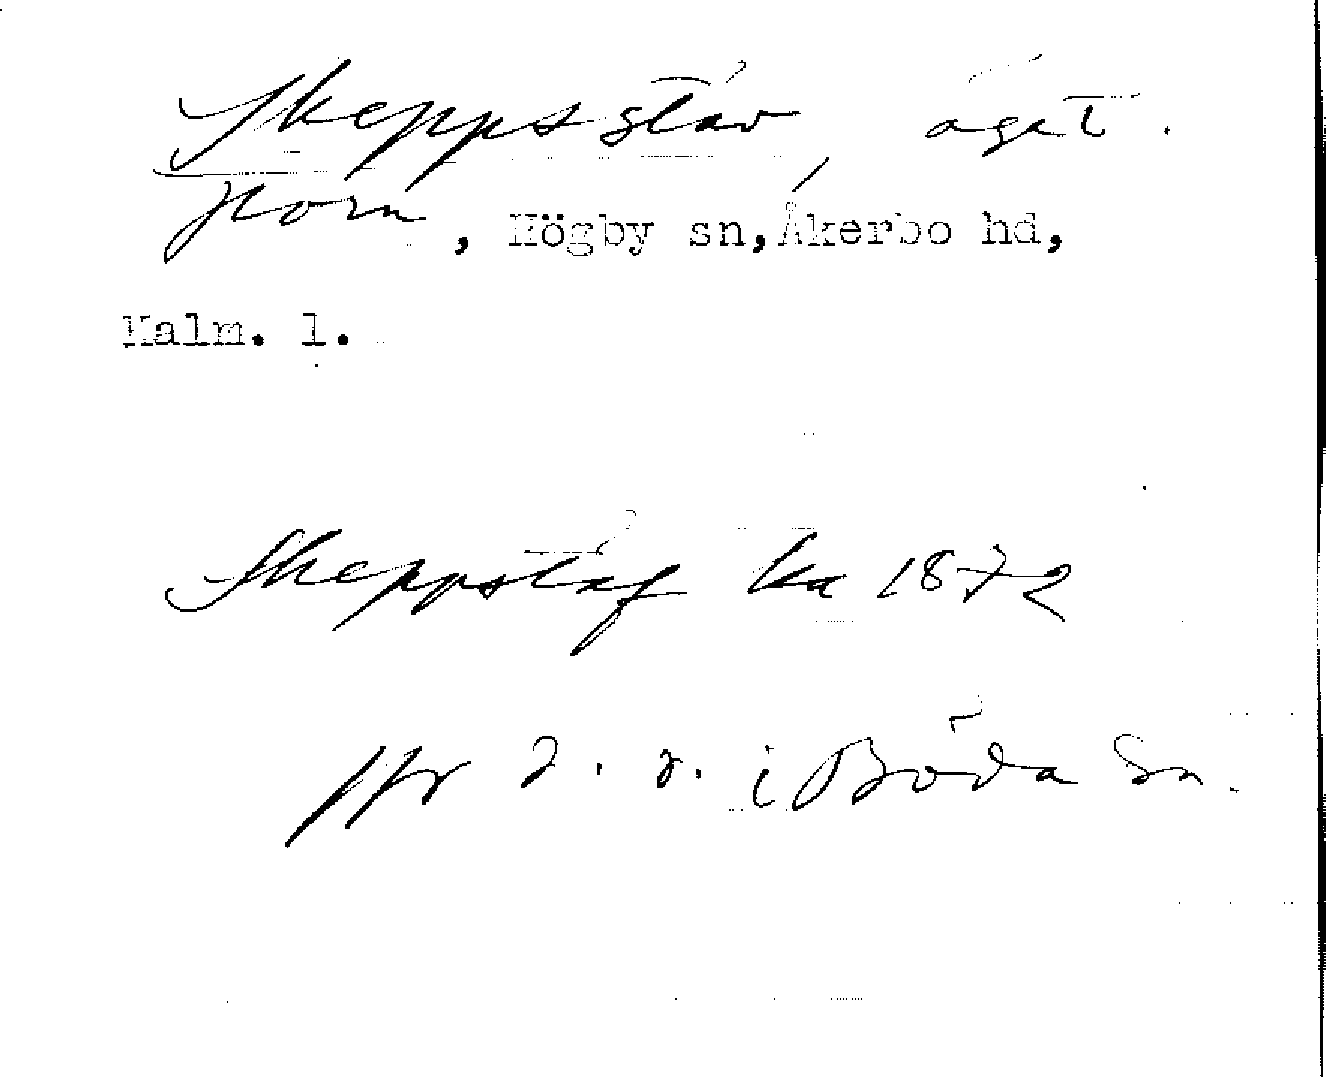 Skeppsstäv, äget.
Horn, Högby sn, Åkerbo hd,
Kalm. l.
Skeppstäf ka 1872
jfr d. o. i Böda sn.